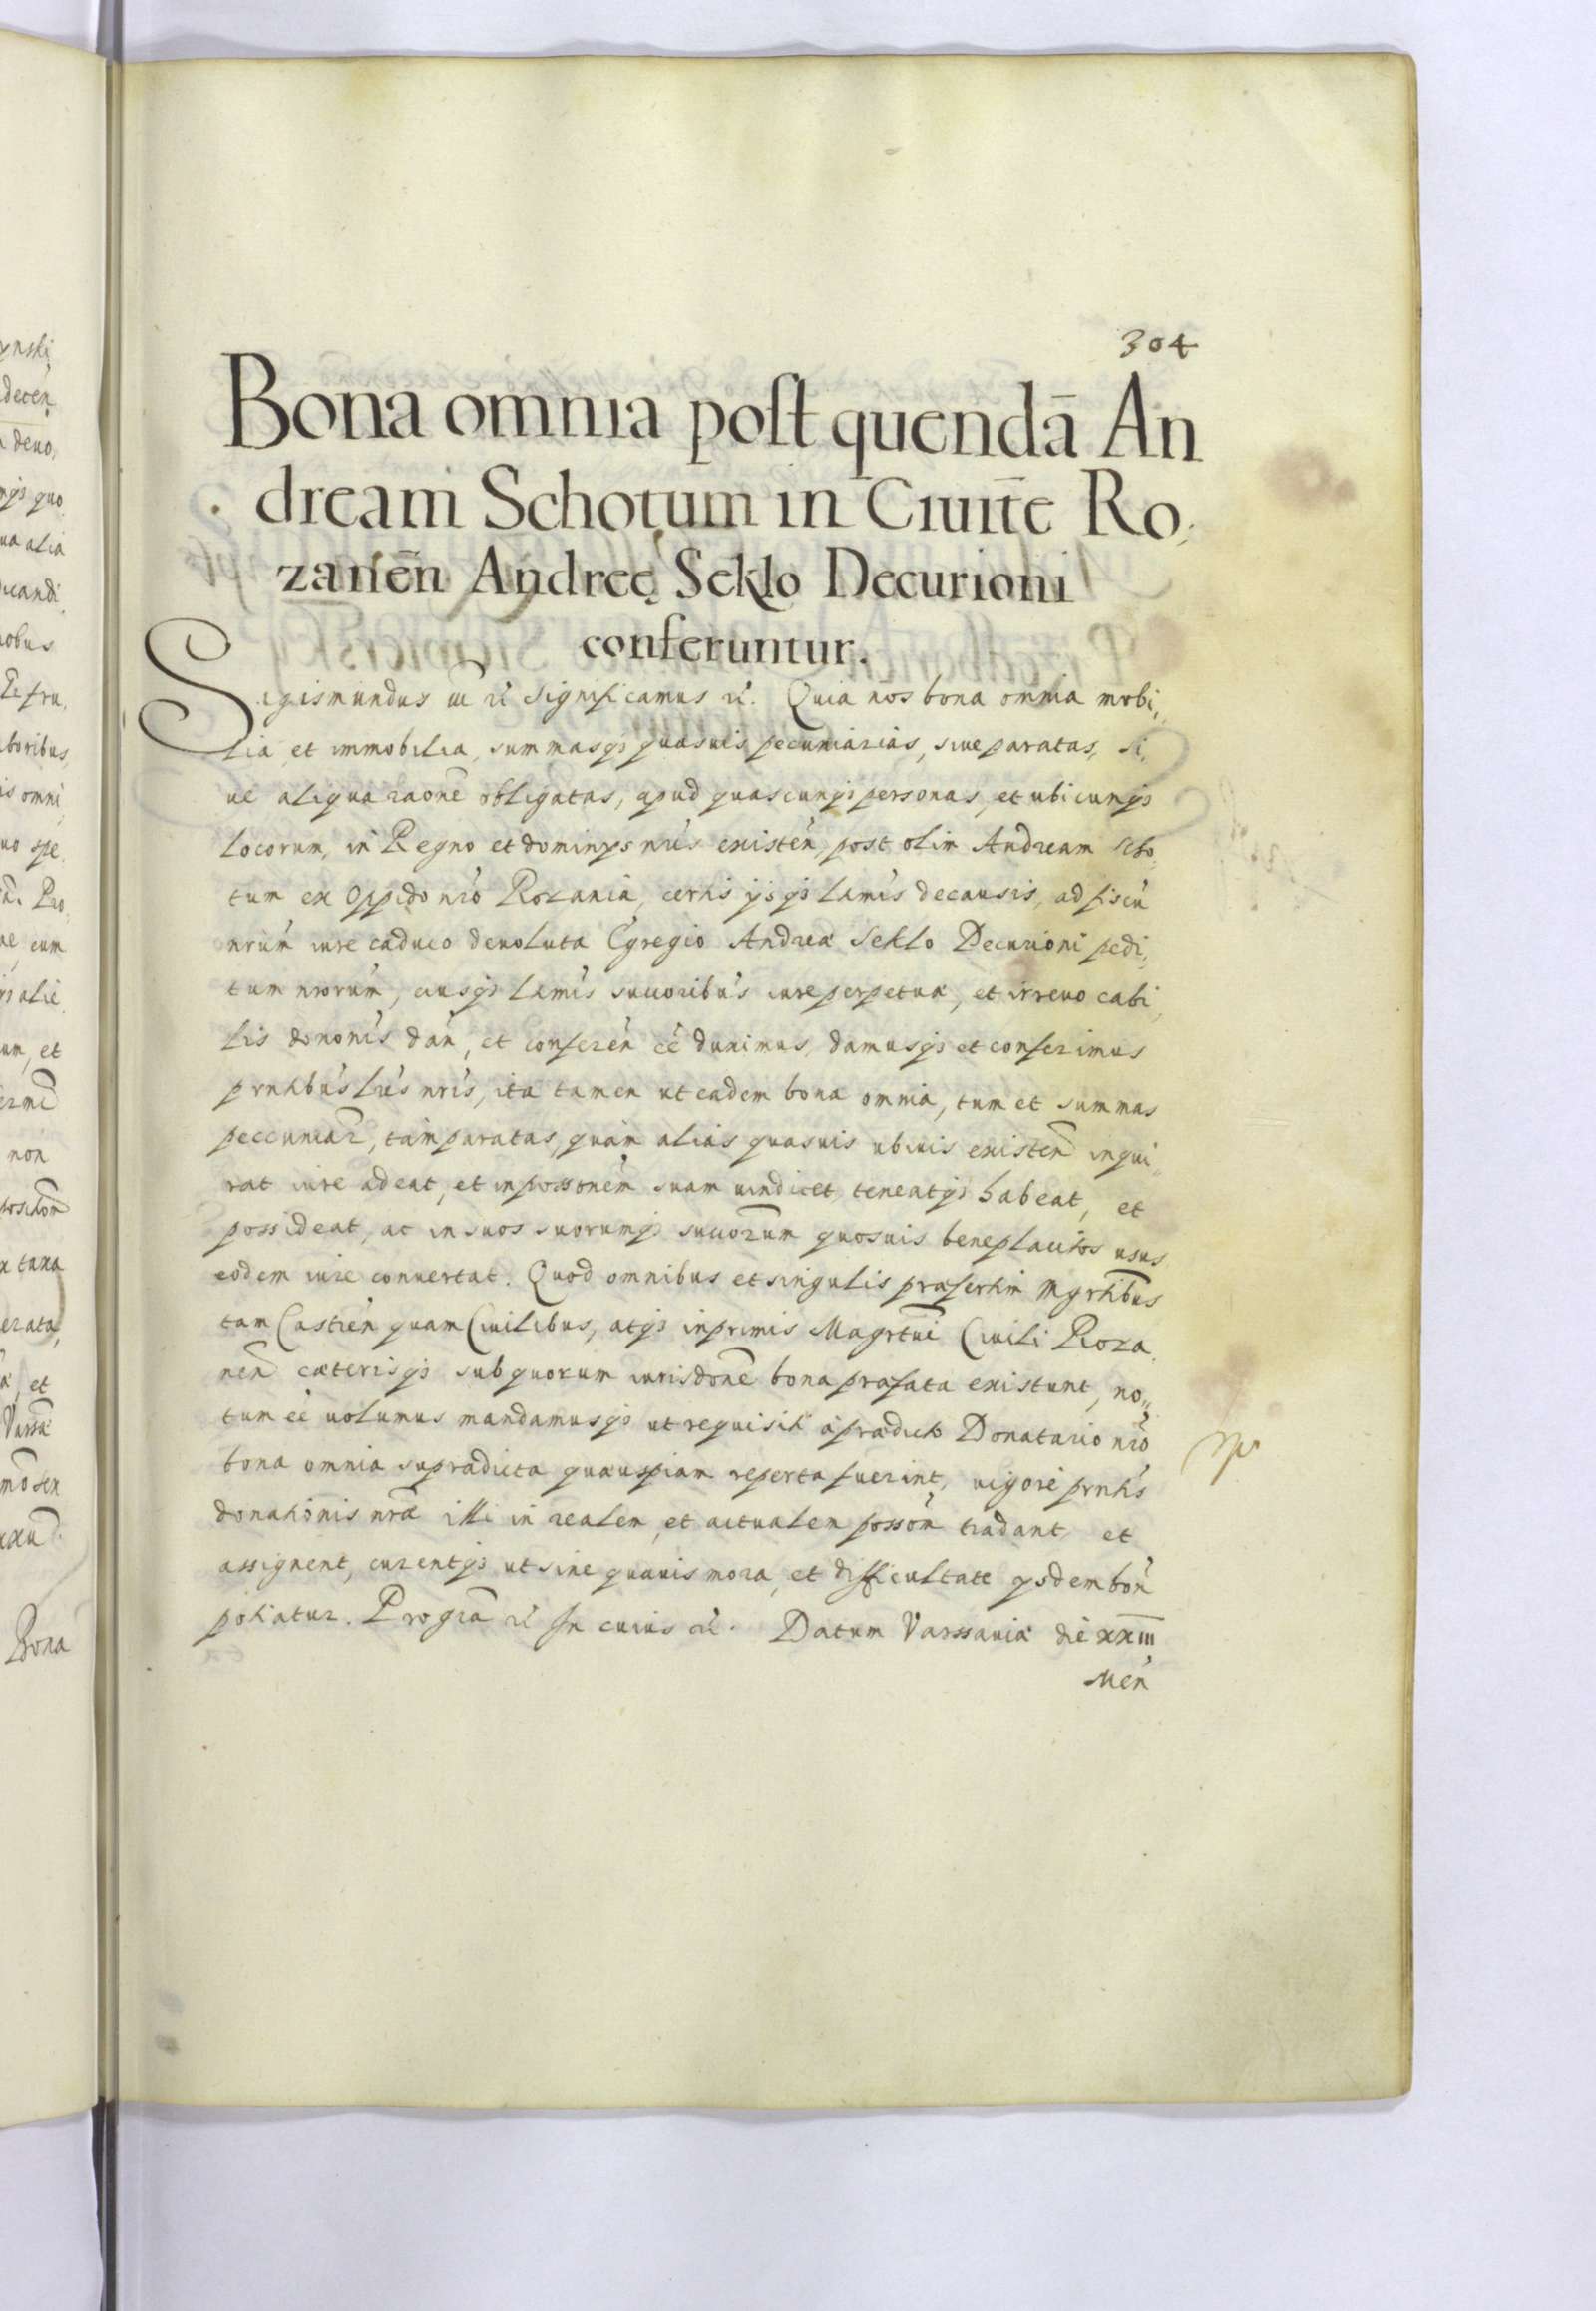 304
Bona omnia post quendā An
dream Schotum in Ciuite̅ Ro,
zanien̅ Andreę Seklo Decurioni
conferuntur.
Sigismundus iii rc̃ significamus rc̃. Quia nos bona omnia mobi,
lia et immobilia, summasqȝ quasuis pecuniarias, siue paratas, si,
ue aliqua raōne obligatas, apud quascunqȝ personas, et ubicunqȝ
locorum, in Regno et dominÿs nr̃is existen̅ post olim Andream Scho,
tum ex Oppido nr̃o Rozania, certis ÿsqȝ l̃amis de causis, ad fiscū
nr̃um iure caduco deuoluta Egregio Andreæ Seklo Decurioni pedi,
tum nr̃orum, eiusqȝ l̃amis succoribus iure perpetuæ, et irreuocabi,
lis dononis dan̅, et conferen̅ ēe duximus, damusqȝ et conferimus
prn̅tibus l̃ris nr̃is, ita tamen ut eadem bona omnia, tum et summas
peccuniar̃, tam paratas, quàm alias quasuis ubiuis existen̅ inqui,
rat iure adeat, et in possonem suam uindicet, teneatqȝ habeat, et
possideat, ac in suos suorumqȝ succorum quosuis beneplacitos usus
eodem iure conuertat. Quod omnibus et singulis præsertim Mgr̃tibus
tam Castren̅ quam Ciuilibus, atqȝ inprimis Magr̃tui Ciuili Roza,
nen̅ cæterisqȝ sub quorum iurisdōne bona præfata existunt, no,,
tum ēe uolumus mandamusqȝ ut requisiti à prædicto Donatario nr̃o
bona omnia supradicta quæuspiam reperta fuerint, uigore prn̅tis
donationis nr̃æ illi in realem, et actualem posson̅ tradant et
assignent, curentqȝ ut sine quauis mora, et difficultate ÿsdem bon̅
potiatur. Pro gr̃a rc̃ In cuius rc̃. Datum Varssauiæ die xxiii
Men̅